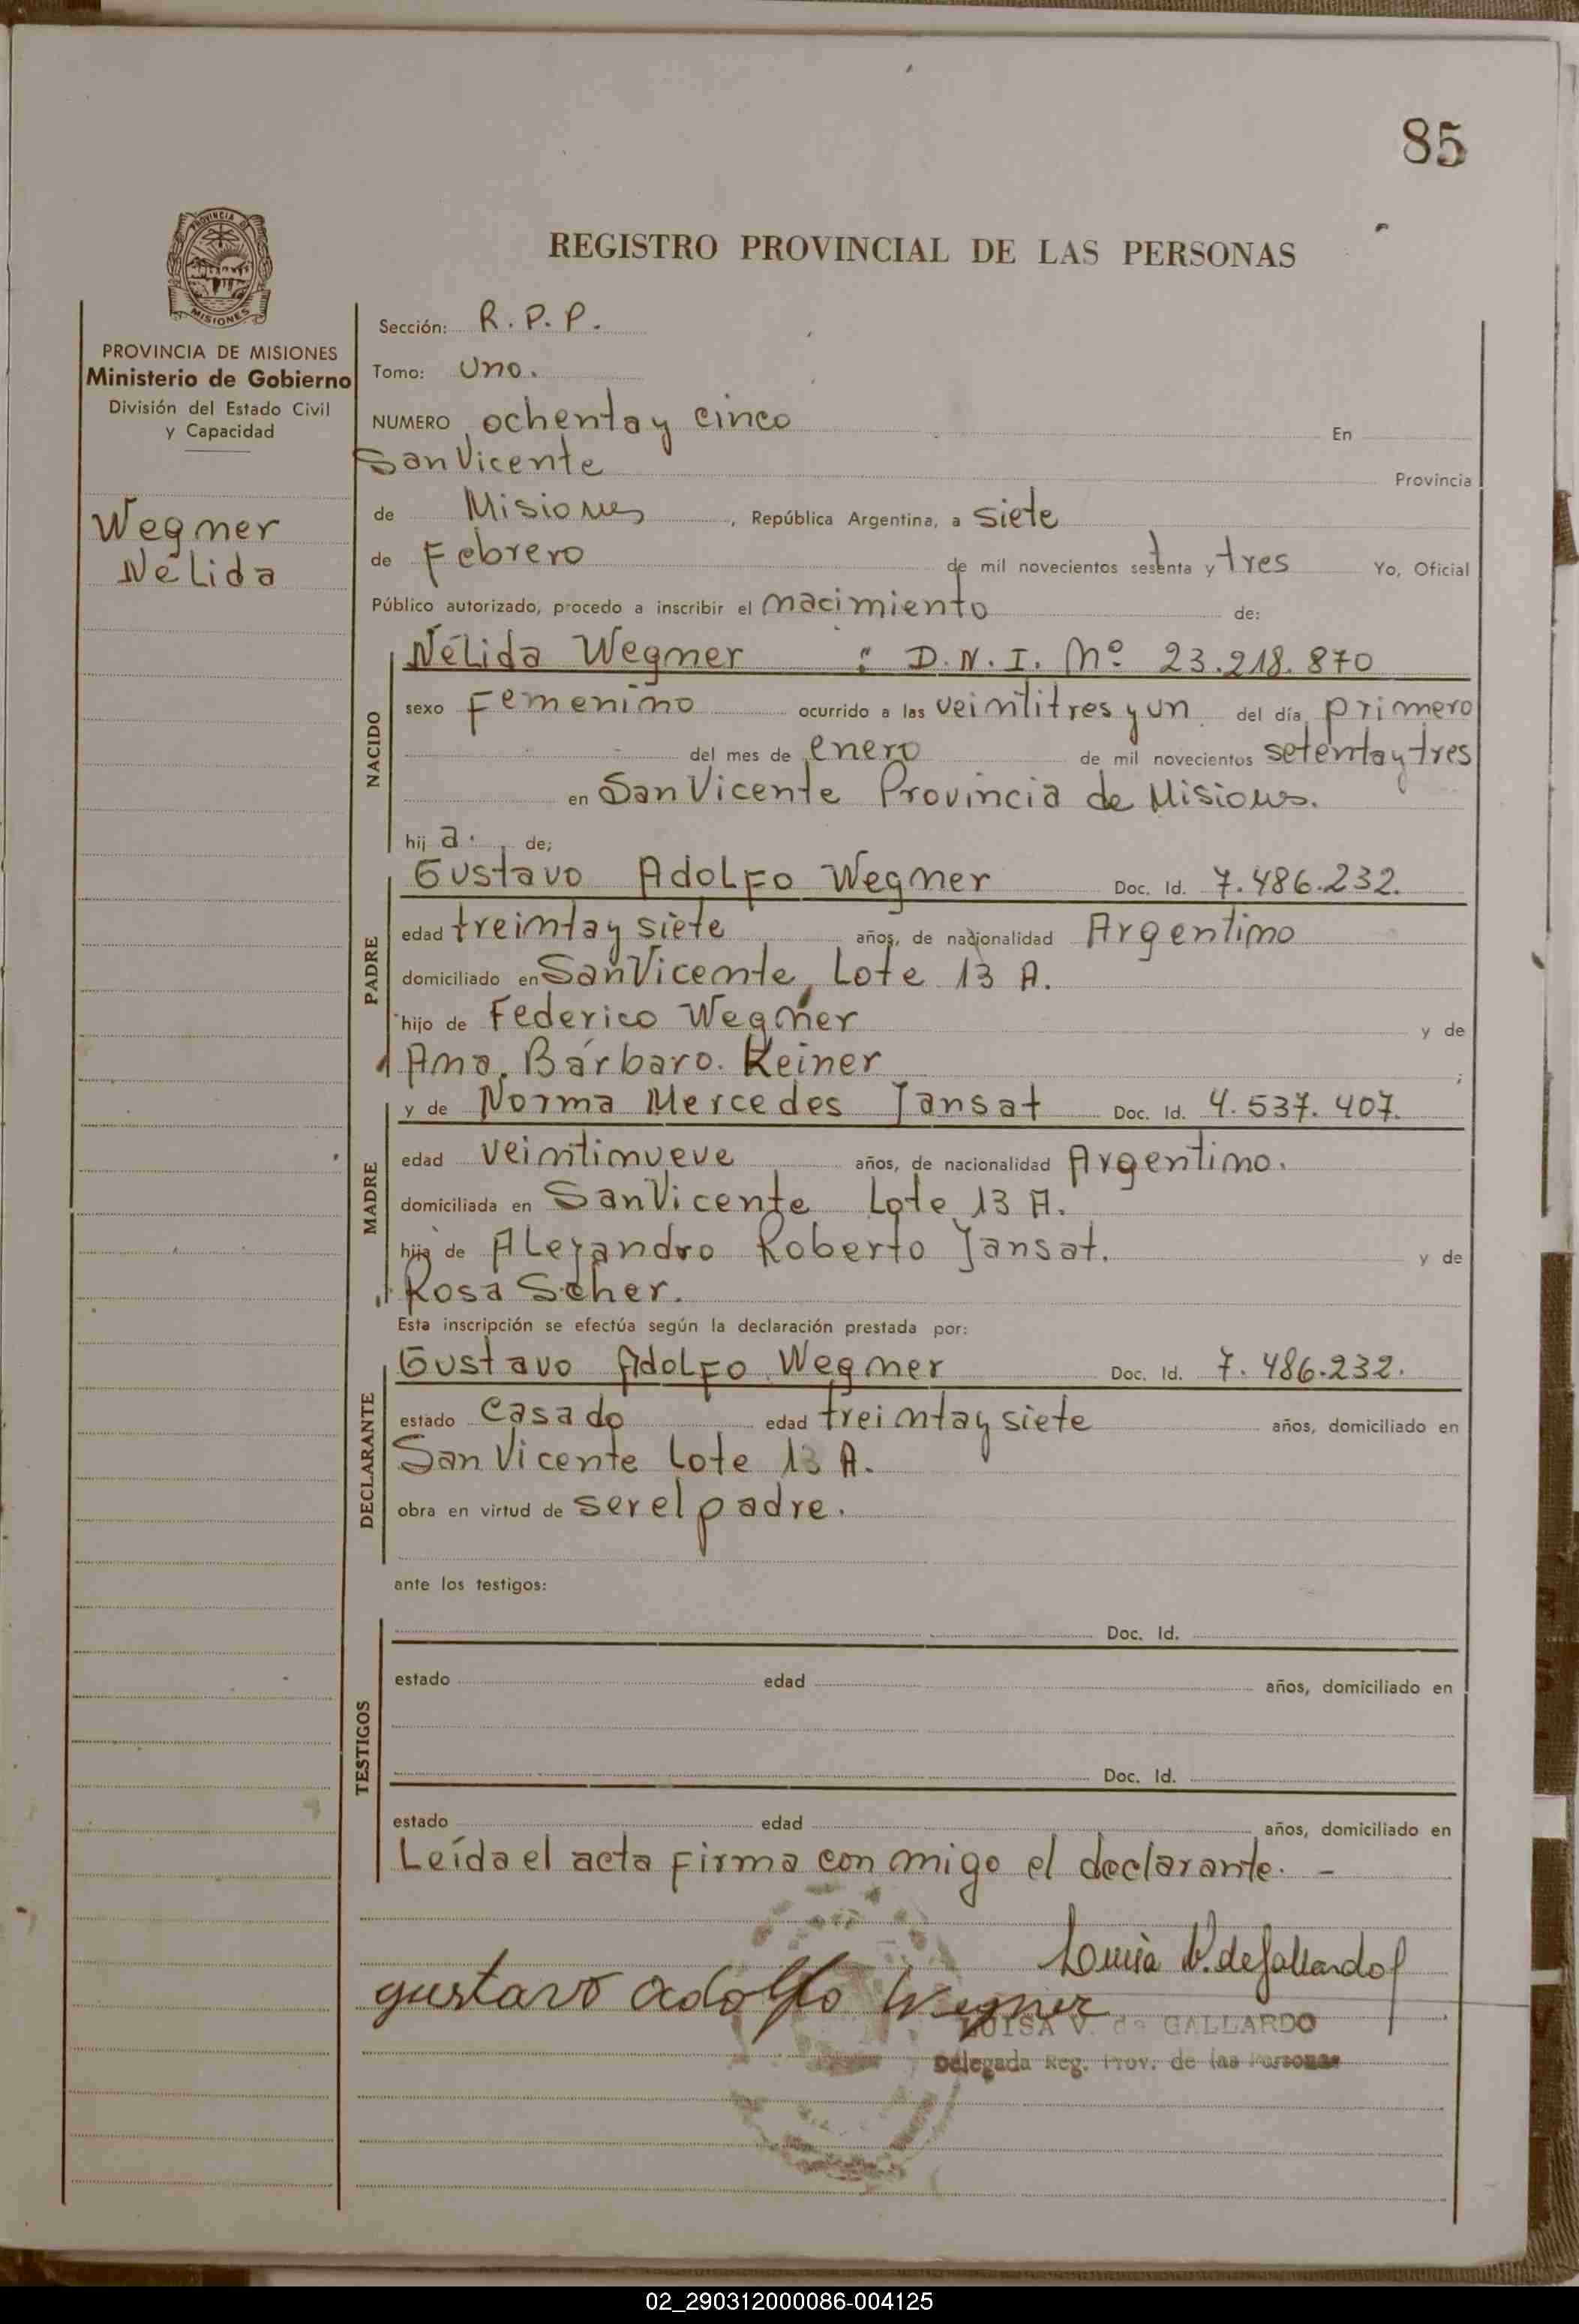 85
REGISTRO PROVINCIAL DE LAS PERSONAS
PROVINCIA DE MISIONES
Ministerio de Gobierno
División del Estado Civil
y Capacidad
Wegner
Nélida
Sección: R.P.P.
Tomo: Uno.
NUMERO ochenta y cinco En
San Vicente Provincia
de Misiones, República Argentina, a siete
de Febrero de mil novecientos setenta y tres Yo, Oficial
Público autorizado, procedo a inscribir el nacimiento de:
NACIDO
Nélida Wegner : D.N.I. Nº 23.218.870
sexo Femenino ocurrido a las veintitres y un del día primero
del mes de enero de mil novecientos setenta y tres
en San Vicente Provincia de Misiones.
hij a. de;
PADRE
Gustavo Adolfo Wegner Doc. Id. 7.486.232.
edad treinta y siete años, de nacionalidad Argentino
domiciliado en San Vicente, Lote 13 A.
hijo de Federico Wegner y de
Ana. Bárbaro. Keiner ;
MADRE
y de Norma Mercedes Jansat Doc. Id. 4.537.407.
edad veintinueve años, de nacionalidad Argentino.
domiciliada en San Vicente Lote 13 A.
hija de Alejandro Roberto Jansat. y de
Rosa Scher.
Esta inscripción se efectúa según la declaración prestada por:
DECLARANTE
Gustavo Adolfo Wegner Doc. Id. 7.486.232.
estado Casado edad treinta y siete años, domiciliado en
San Vicente Lote 13 A.
obra en virtud de ser el padre.
ante los testigos:
TESTIGOS
Doc. Id.
estado edad años, domiciliado en
Doc. Id.
estado edad años, domiciliado en
Leída el acta firma con migo el declarante. -
Luisa V. de Gallardo
gustavo adolfo Wegner
LUISA V. de GALLARDO
Delegada Reg. Prov. de las Personas
02_290312000086-004125